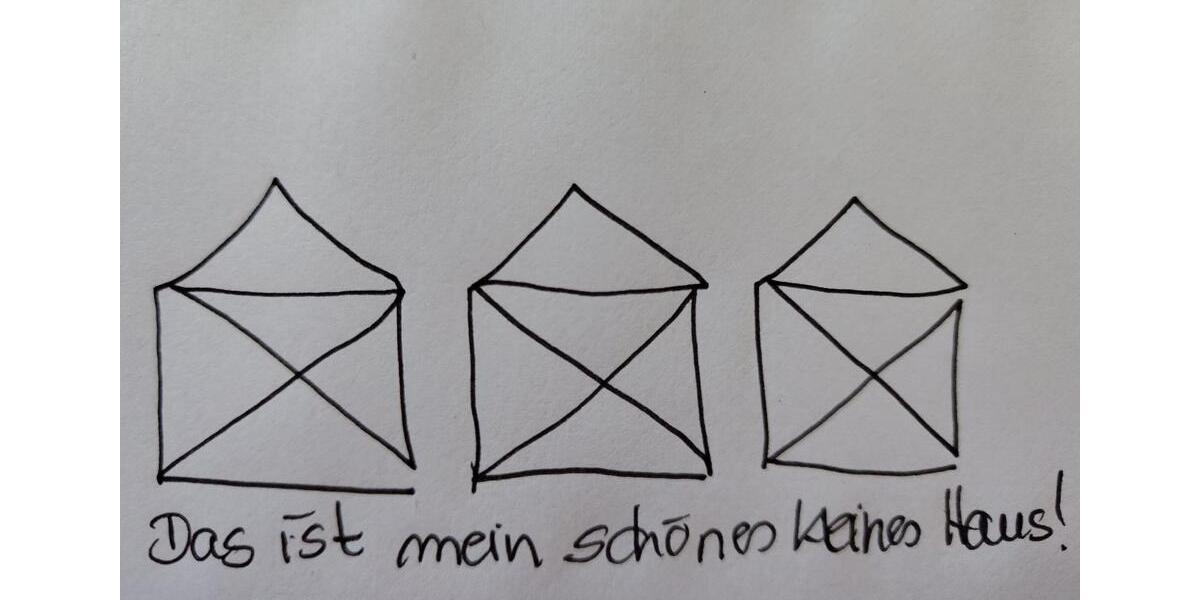 Das ist mein schönes kleines Haus!